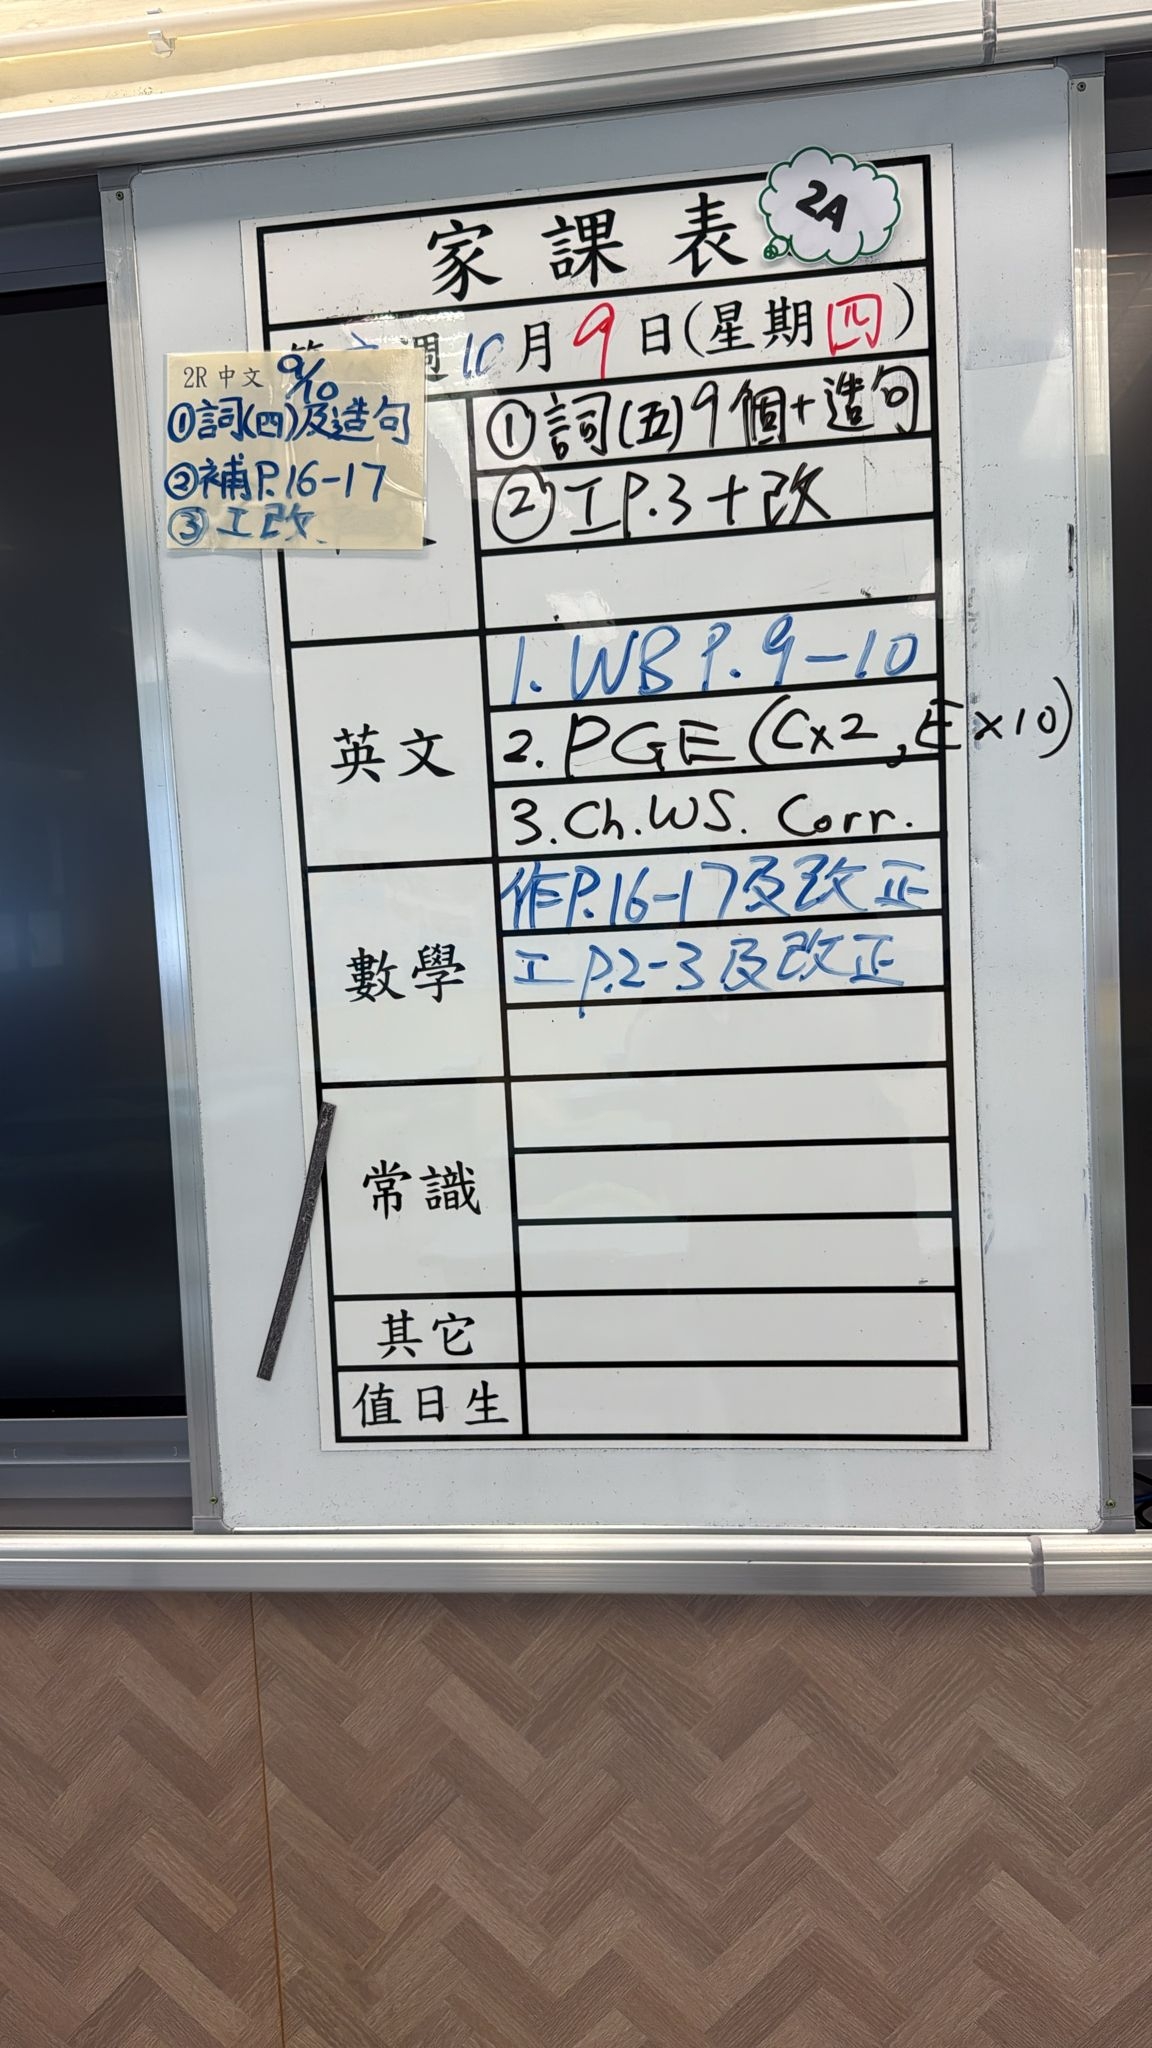 家課表
2A
週10月9日(星期四)
2R 中文 9/10
①詞(四)及造句
②補P.16-17
③工改
①詞(五)9個+造句
②工P.3+改
英文
1. WB P. 9-10
2. PGE (Cx2, Ex10)
3. Ch. WS. Corr.
數學
作P.16-17及改正
工P.2-3及改正
常識
其它
值日生